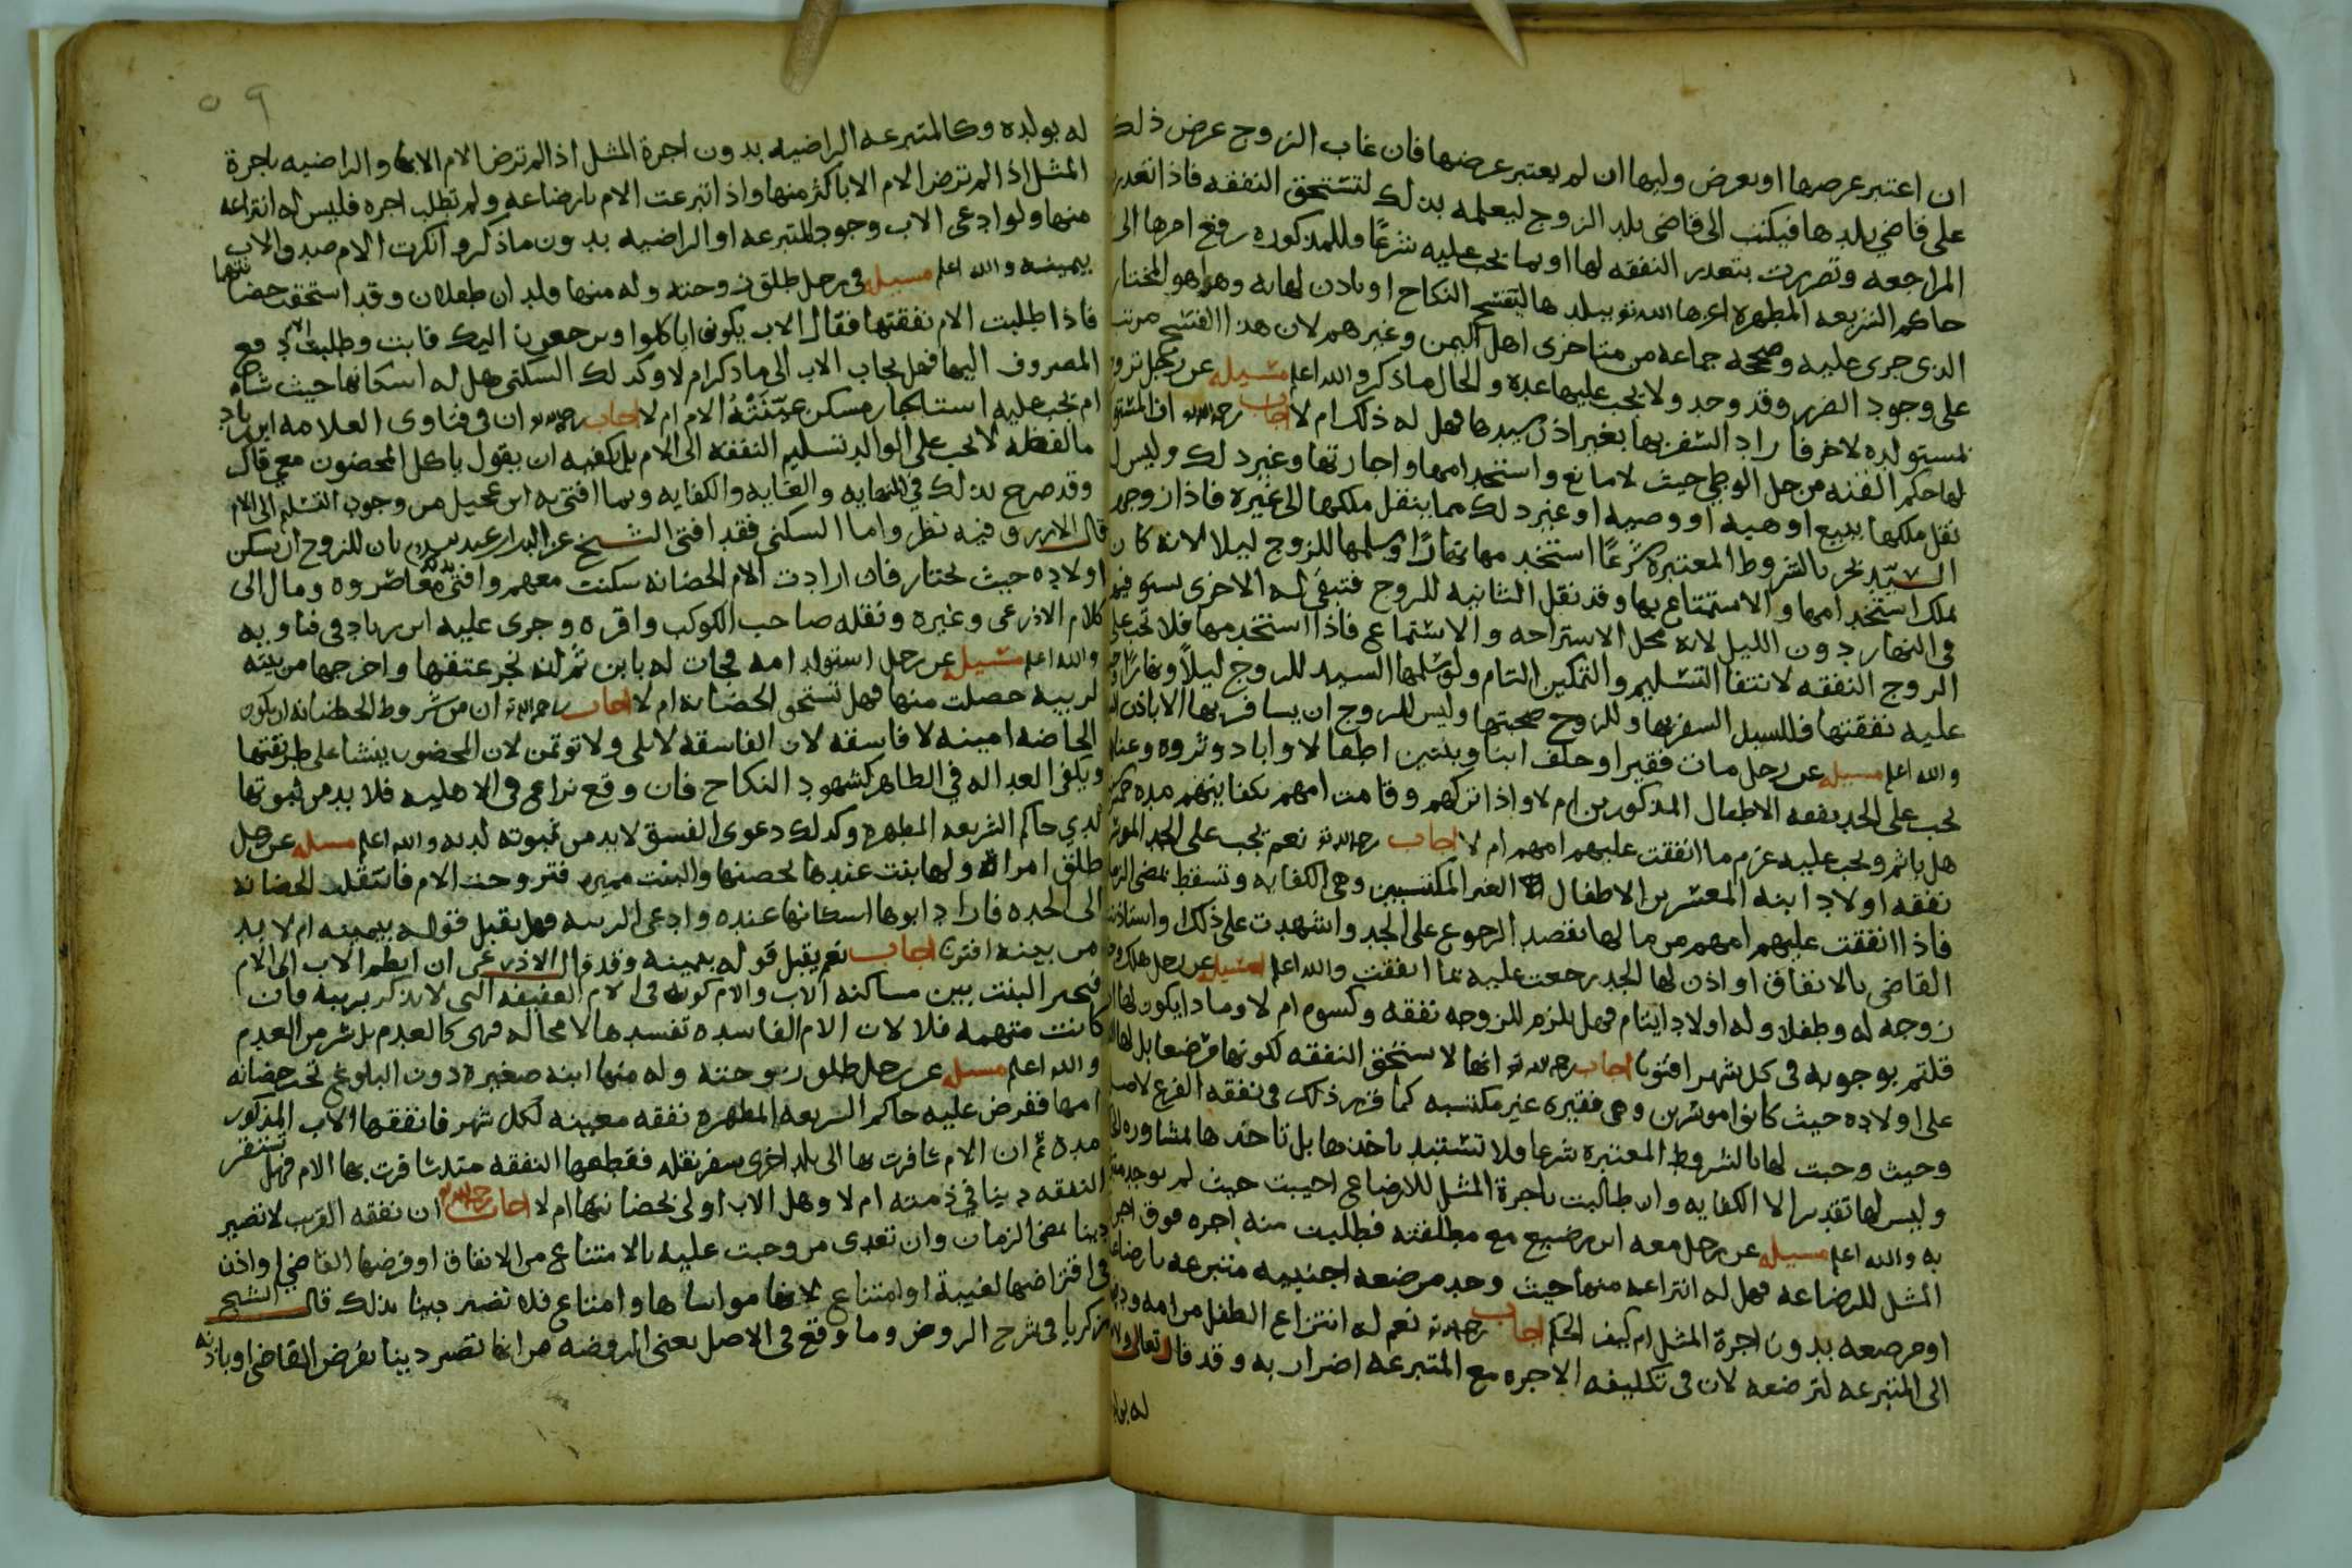 ان اعتبر عرضها او بعرض وليها ان لم يعتبر عرضها فان غاب الزوج عرض ذلك
على قاضي بلدها فيكتب الى قاضي بلد الزوج ليعلمه بذلك لتستحق النفقه فاذا تعذر
المراجعه وتضررت بتعذر النفقه لها او بما يجب عليه شرعًا وللمذكوره رفع امرها الى
حاكم الشريعه المطهره اعزها الله تع ببلدها ليفسخ النكاح او ياذن لها به وهذا هو المختار
الذي جرى عليه وصححه جماعه من متاخري اهل اليمن وغيرهم لان هذا الفسخ مرتب
على وجود الضرر وقد وجد ولا يجب عليها عده والحال ما ذكر والله اعلم مسيله عن رجل تزوج
بمستولده لاخر فاراد السفر بها بغير اذن سيدها فهل له ذلك ام لا اجاب رحمه الله ان المستولده
لها حكم القنه من حل الوطي حيث لا مانع واستخدامها واجارتها وغير ذلك وليس له
نقل ملكها ببيع او هبه او وصيه او غير ذلك مما ينقل ملكها الى غيره فاذا زوجها
السيد بحر بالشروط المعتبره شرعًا استخدمها نهارًا وسلمها للزوج ليلا لانه كان
يملك استخدامها والاستمتاع بها وقد نقل الثانيه للزوج فتبقى له الاخرى يستوفيها
في النهار دون الليل لانه محل الاستراحه والاستمتاع فاذا استخدمها فلا تجب على
الزوج النفقه لانتفا التسليم والتمكين التام ولو سلمها السيد للزوج ليلاً ونهارًا وجب
عليه نفقتها فللسيد السفر بها وللزوج صحبتها وليس للزوج ان يسافر بها الا باذن السيد
والله اعلم مسيله عن رجل مات فقيرا وخلف ابنا وبنتين اطفالا وابا ذو ثروه وغنا
يجب على الجد نفقه الاطفال المذكورين ام لا واذا تركهم وقامت امهم بكفايتهم مده
هل ياثم ويجب عليه غرم ما انفقت عليهم امهم ام لا اجاب رحمه الله تع نعم يجب على الجد الموسر
نفقه اولاد ابنه المعسرين الاطفال الغير المكتسبين وهي الكفايه وتسقط بمضي الزمان
فاذا انفقت عليهم امهم من مالها بقصد الرجوع على الجد واشهدت على ذلك واستاذنت
القاضي بالانفاق او اذن لها الجد رجعت عليه بما انفقت والله اعلم مسيله عن رجل هلك وله
زوجه له وطفلا وله اولاد ايتام فهل يلزم للزوجه نفقه وكسوه ام لا وماذا يكون لها ان
قلتم بوجوبه في كل شهر افتونا اجاب رحمه الله تع انها لا تستحق النفقه لكونها مرضعا بل لها
على اولاده حيث كانوا موسرين وهي فقيره غير مكتسبه كما قرر ذلك في نفقه الفرع لاصله
وحيث وجبت لها بالشروط المعتبره شرعا فلا تستبد باخذها بل تاخذها بمشاوره
وليس لها تقدير الا الكفايه وان طالبت باجرة المثل للارضاع اجيبت حيث لم يوجد
به والله اعلم مسيله عن رجل معه ابن رضيع مع مطلقته فطلبت منه اجره فوق اجره
المثل للرضاعه فهل له انتزاعه منها حيث وجد مرضعه اجنبيه متبرعه بارضاعه
او مرضعه بدون اجرة المثل ام كيف الحكم اجاب رحمه الله نعم له انتزاع الطفل من امه ودفعه
الى المتبرعه لترضعه لان في تكليفه الاجره مع المتبرعه اضرار به وقد قال تعالى ولا
له بولده
٥٩
له بولده وكالمتبرعه الراضيه بدون اجرة المثل اذا لم ترض الام الا بها والراضيه باجرة
المثل اذا لم ترض الام الا باكثر منها واذا تبرعت الام بارضاعه ولم تطلب اجره فليس له انتزاعه
منها ولو ادعى الاب وجود المتبرعه او الراضيه بدون ما ذكر وانكرت الام صدق الاب
بيمينه والله اعلم مسيله في رجل طلق زوجته وله منها ولدان طفلان وقد استحقت حضانتها
فاذا طلبت الام نفقتها فقال الاب يكونوا ياكلوا ويرجعون اليك فابت وطلبت دفع
المصروف اليها فهل يجاب الاب الى ما ذكر ام لا وكذلك السكنى هل له اسكانها حيث شاء
ام يجب عليه استئجار مسكن عينته الام ام لا اجاب رحمه الله تع ان في فتاوى العلامه ابن زياد
ما لفظه لا يجب على الوالد تسليم النفقه الى الام بل يكفيه ان يقول ياكل المحضون معي قال
وقد صرح بذلك في النهايه والغايه والكفايه وبما افتى به ابن عجيل من وجوب التسليم الى الام
قال الازرق وفيه نظر واما السكنى فقد افتى الشيخ عز الدين ابن عبد السلام بان للزوج ان يسكن
اولاده حيث يختار فان ارادت الام الحضانه سكنت معهم وافتى به معاصروه ومال الى
كلام الاذرعي وغيره ونقله صاحب الكوكب واقره وجرى عليه ابن زياد في فتاويه
والله اعلم مسيله عن رجل استولد امه فجات له بابن ثم انه نجر عتقها واخرجها من بيته
لريبه حصلت منها فهل تستحق الحضانه ام لا اجاب رحمه الله تع ان من شروط الحضانه ان يكون
الحاضنه امينه لا فاسقه لان الفاسقه لا تلي ولا توتمن لان المحضون ينشا على طريقتها
ويكفي العداله في الظاهر كشهود النكاح فان وقع نزاع في الاهليه فلا بد من ثبوتها
لدي حاكم الشريعه المطهره وكذلك دعوى الفسق لا بد من ثبوته لديه والله اعلم مسيله عن رجل
طلق امراة ولها بنت عندها تحضنها والبنت مميزه فتزوجت الام فانتقلت الحضانه
الى الجده فاراد ابوها اسكانها عنده وادعى الريبه فهل يقبل قوله بيمينه ام لا بد
من بينه افتونا اجاب نعم يقبل قوله بيمينه وقد قال الاذرعي ان انظم الاب الى الام
فتخير البنت بين مساكنه الاب والام كونه في الام العفيفه التي لا تذكر بريبه فان
كانت متهمه فلا لان الام الفاسده تفسدها لا محاله فهي كالعدم بل شر من العدم
والله اعلم مسيله عن رجل طلق زوجته وله منها ابنه صغيره دون البلوغ تحت حضانه
امها ففرض عليه حاكم الشريعه المطهره نفقه معينه لكل شهر فانفقها الاب المذكور
مده ثم ان الام سافرت بها الى بلد اخرى سفر نقله فقطعها النفقه منذ سافرت بها الام فهل تستقر
النفقه دينا في ذمته ام لا وهل الاب اولى بحضانتها ام لا اجاب رحمه الله ان نفقه القريب لا تصير
دينا بمضي الزمان وان تعدى من وجبت عليه بالامتناع من الانفاق او فرضها القاضي او اذن
في اقتراضها لغيبة او امتناع لانها مواساها وامتناع فلا تصير دينا بذلك قال الشيخ
زكريا في شرح الروض وما وقع في الاصل يعني الروضه من انها تصير دينا بفرض القاضي او باذنه